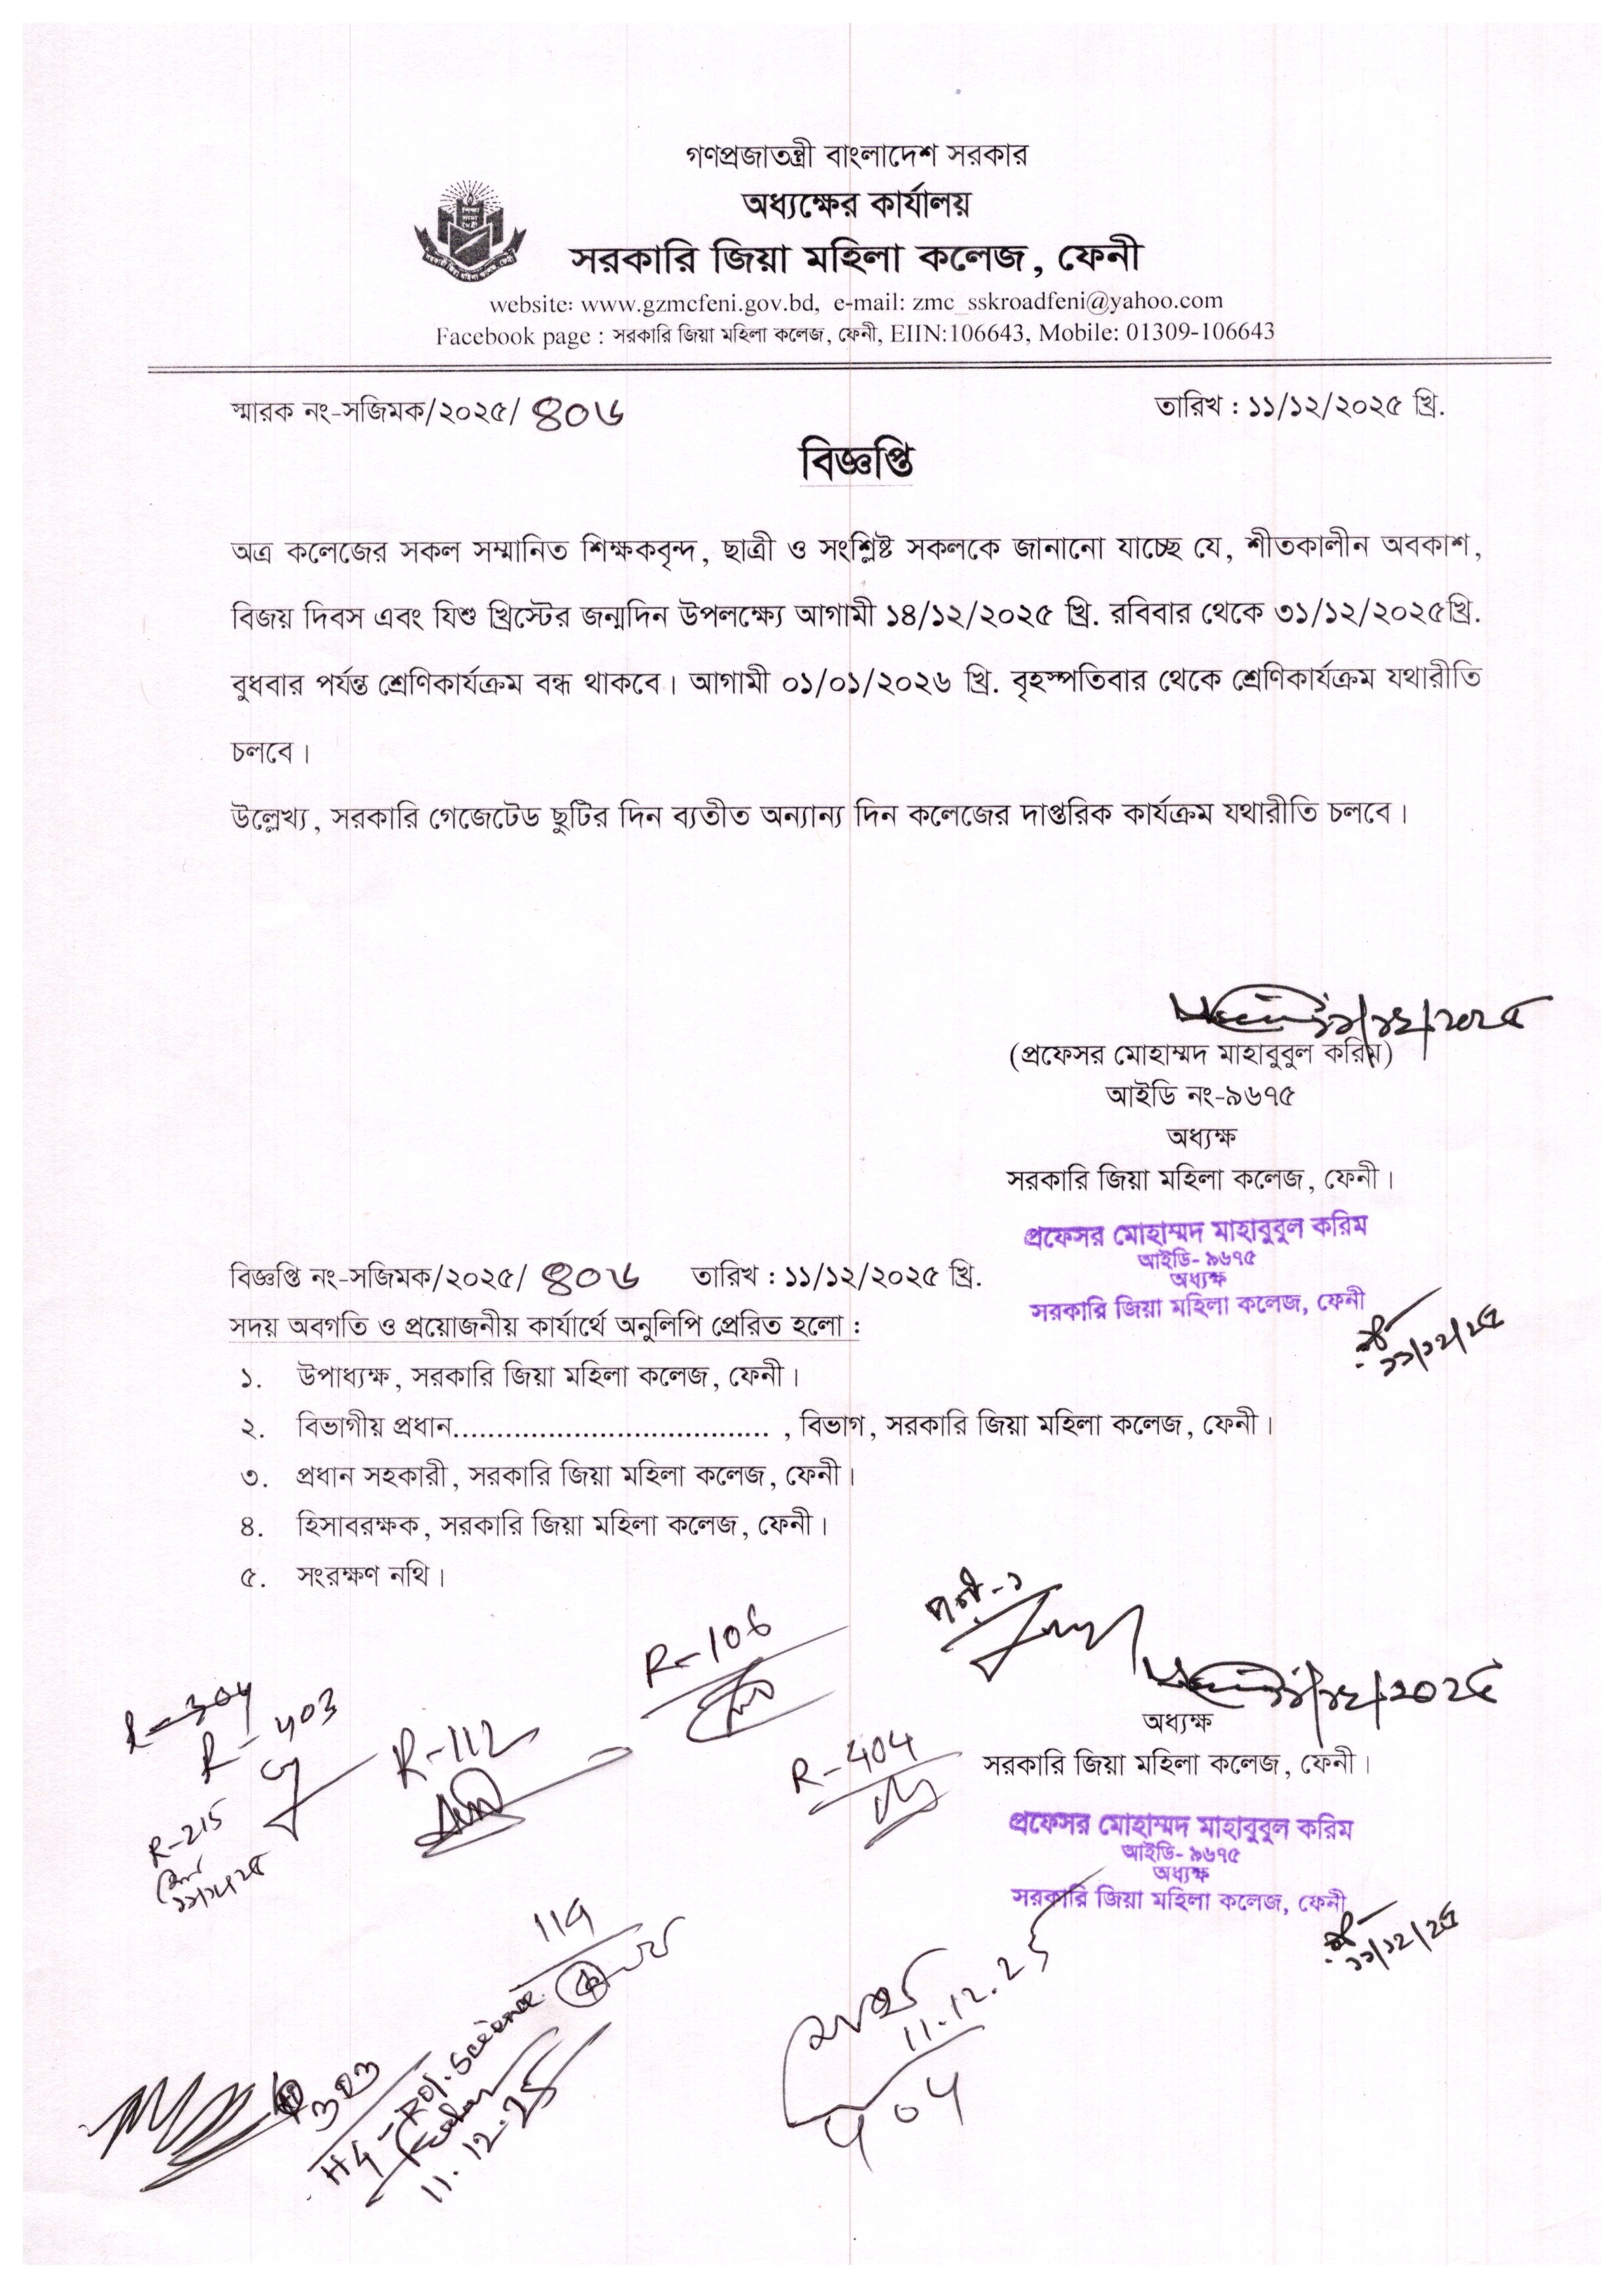 গণপ্রজাতন্ত্রী বাংলাদেশ সরকার
অধ্যক্ষের কার্যালয়
সরকারি জিয়া মহিলা কলেজ, ফেনী
website: www.gzmcfeni.gov.bd, e-mail: zmc_sskroadfeni@yahoo.com
Facebook page : সরকারি জিয়া মহিলা কলেজ, ফেনী, EIIN:106643, Mobile: 01309-106643
স্মারক নং-সজিমক/২০২৫/ ৪০৬ তারিখ : ১১/১২/২০২৫ খ্রি.
বিজ্ঞপ্তি
অত্র কলেজের সকল সম্মানিত শিক্ষকবৃন্দ, ছাত্রী ও সংশ্লিষ্ট সকলকে জানানো যাচ্ছে যে, শীতকালীন অবকাশ,
বিজয় দিবস এবং যিশু খ্রিস্টের জন্মদিন উপলক্ষ্যে আগামী ১৪/১২/২০২৫ খ্রি. রবিবার থেকে ৩১/১২/২০২৫খ্রি.
বুধবার পর্যন্ত শ্রেণিকার্যক্রম বন্ধ থাকবে। আগামী ০১/০১/২০২৬ খ্রি. বৃহস্পতিবার থেকে শ্রেণিকার্যক্রম যথারীতি
চলবে।
উল্লেখ্য, সরকারি গেজেটেড ছুটির দিন ব্যতীত অন্যান্য দিন কলেজের দাপ্তরিক কার্যক্রম যথারীতি চলবে।
১১/১২/২০২৫
(প্রফেসর মোহাম্মদ মাহাবুবুল করিম)
আইডি নং-৯৬৭৫
অধ্যক্ষ
সরকারি জিয়া মহিলা কলেজ, ফেনী।
প্রফেসর মোহাম্মদ মাহাবুবুল করিম
আইডি- ৯৬৭৫
অধ্যক্ষ
সরকারি জিয়া মহিলা কলেজ, ফেনী
১১/১২/২৫
বিজ্ঞপ্তি নং-সজিমক/২০২৫/ ৪০৬ তারিখ : ১১/১২/২০২৫ খ্রি.
সদয় অবগতি ও প্রয়োজনীয় কার্যার্থে অনুলিপি প্রেরিত হলো :
১. উপাধ্যক্ষ, সরকারি জিয়া মহিলা কলেজ, ফেনী।
২. বিভাগীয় প্রধান..................................... , বিভাগ, সরকারি জিয়া মহিলা কলেজ, ফেনী।
৩. প্রধান সহকারী, সরকারি জিয়া মহিলা কলেজ, ফেনী।
৪. হিসাবরক্ষক, সরকারি জিয়া মহিলা কলেজ, ফেনী।
৫. সংরক্ষণ নথি।
R-106
R-403
R-112
R-404
R-215
১১/১২/২০২৫
অধ্যক্ষ
সরকারি জিয়া মহিলা কলেজ, ফেনী।
প্রফেসর মোহাম্মদ মাহাবুবুল করিম
আইডি- ৯৬৭৫
অধ্যক্ষ
সরকারি জিয়া মহিলা কলেজ, ফেনী
১১/১২/২৫
11.12.25
Pol. Science
11.12.25